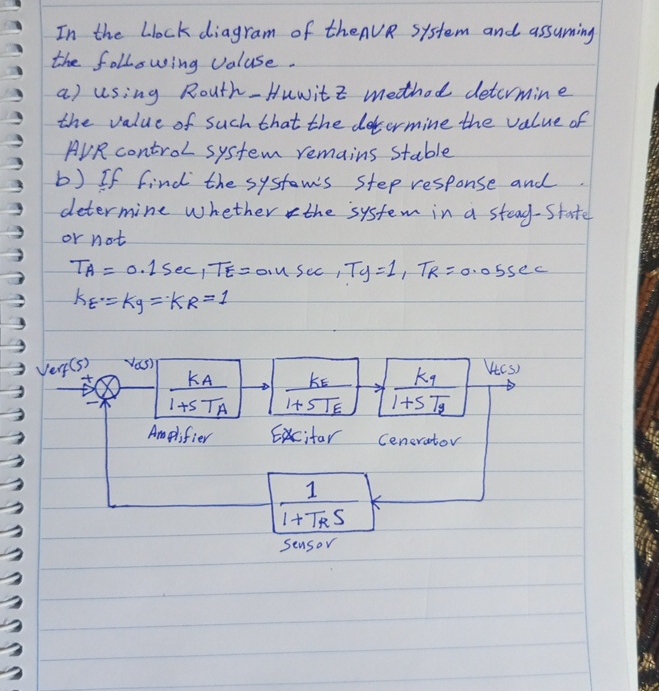 In the block diagram of the AVR system and assuming
the following valuse.
a) using Routh-Huwitz methad determine
the value of such that the determine the value of
AVR control system remains stable
b) If find the system's step response and
determine whether the system in a steay-state
or not
TA = 0.1 sec, TE = 0.4 sec, Tg = 1, TR = 0.05 sec
kE = kg = kR = 1
Verf(s) + Ve(s) kA / 1+STA kE / 1+STE kg / 1+STg Vt(s)
-
Amplifier Excitar Cenerator
1 / 1+TRS
sensor